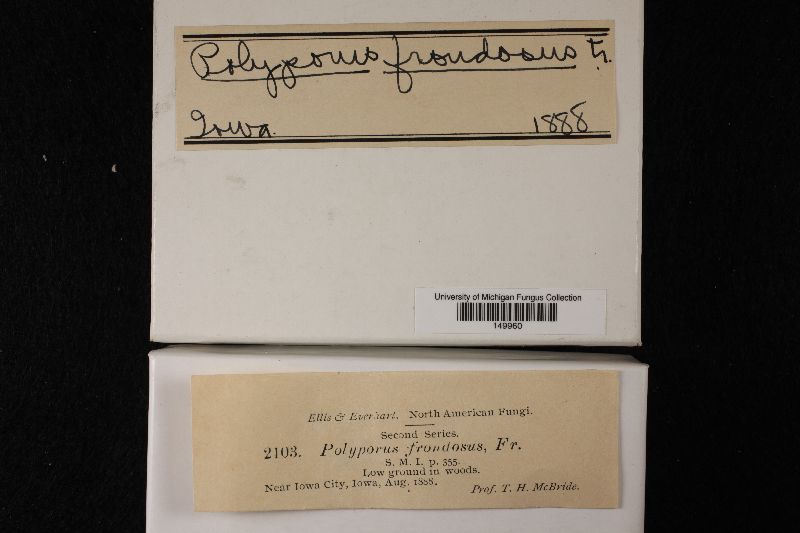 Polyporus frondosus Fr.
Iowa. 1888
University of Michigan Fungus Collection
149960
Ellis & Everhart. North American Fungi.
Second Series.
2103. Polyporus frondosus, Fr.
S. M. I. p. 355.
Low ground in woods.
Near Iowa City, Iowa, Aug. 1888.
Prof. T. H. McBride.